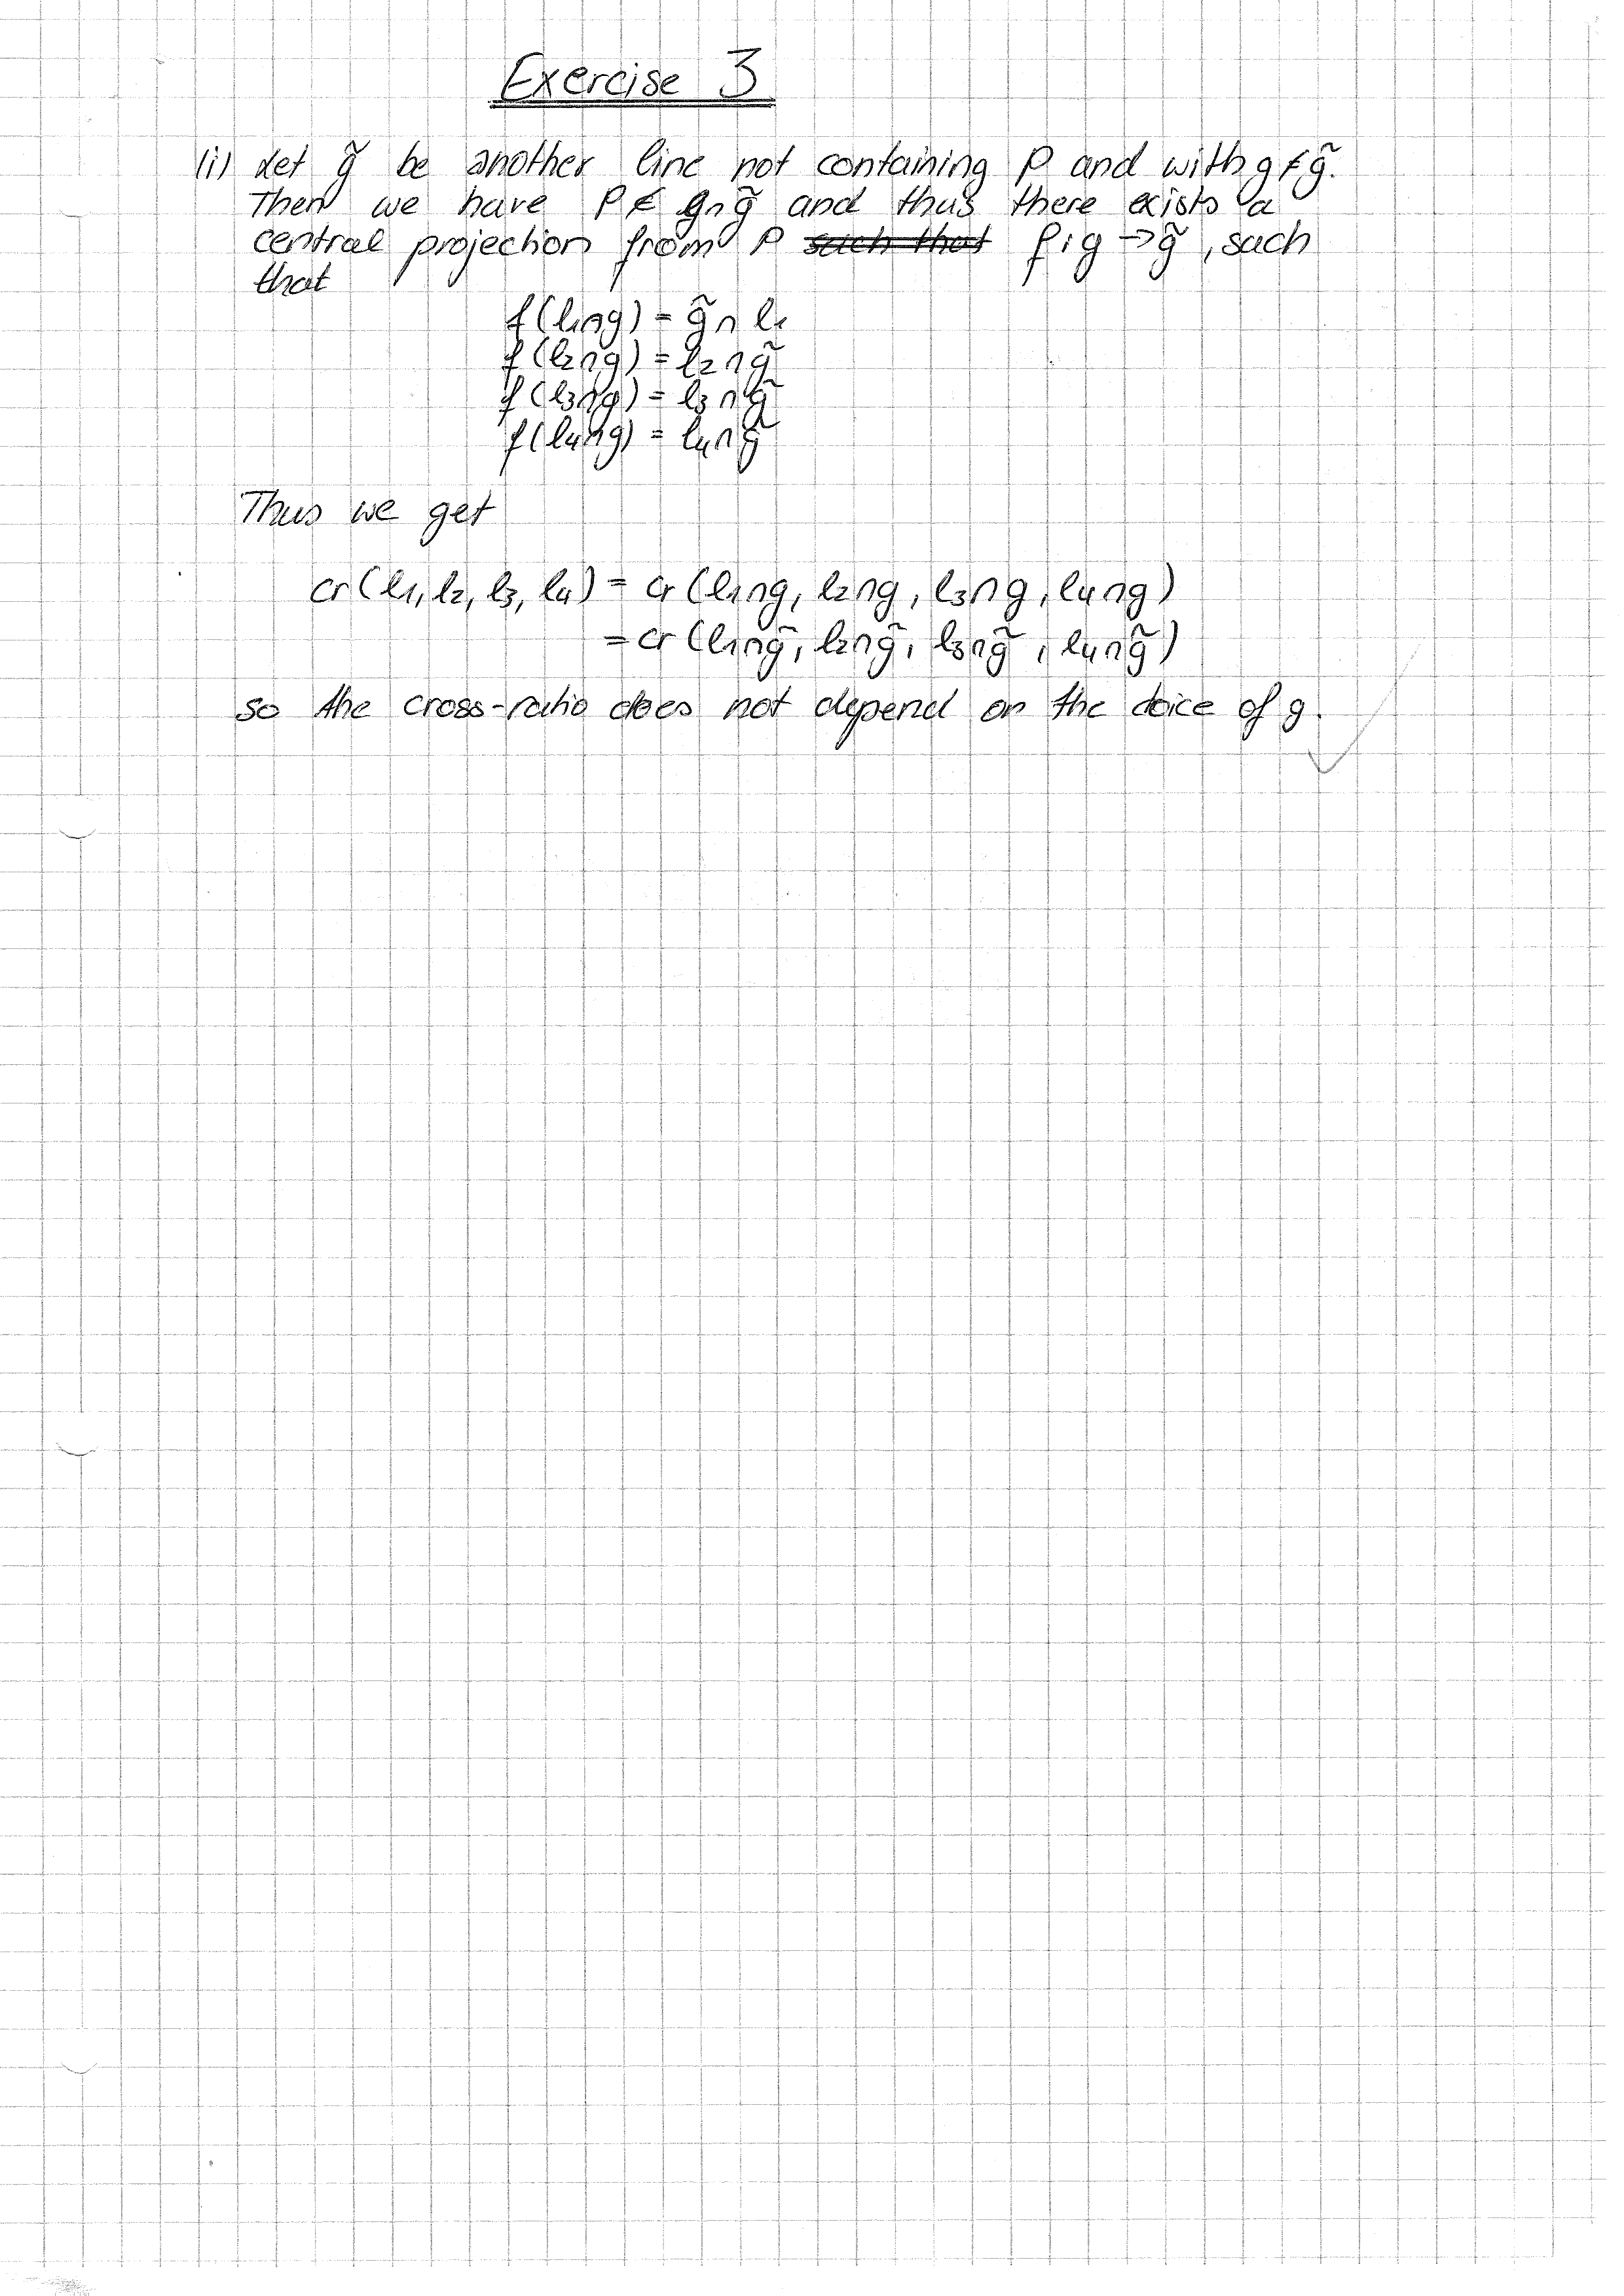 Exercise 3
(i) Let g̃ be another line not containing P and with g ≠ g̃.
Then we have P ∉ g∩g̃ and thus there exists a
central projection from P such that f: g → g̃, such
that
f(l₁∩g) = g̃∩l₁
f(l₂∩g) = l₂∩g̃
f(l₃∩g) = l₃∩g̃
f(l₄∩g) = l₄∩g̃
Thus we get
cr(l₁, l₂, l₃, l₄) = cr(l₁∩g, l₂∩g, l₃∩g, l₄∩g)
= cr(l₁∩g̃, l₂∩g̃, l₃∩g̃, l₄∩g̃)
so the cross-ratio does not depend on the choice of g.